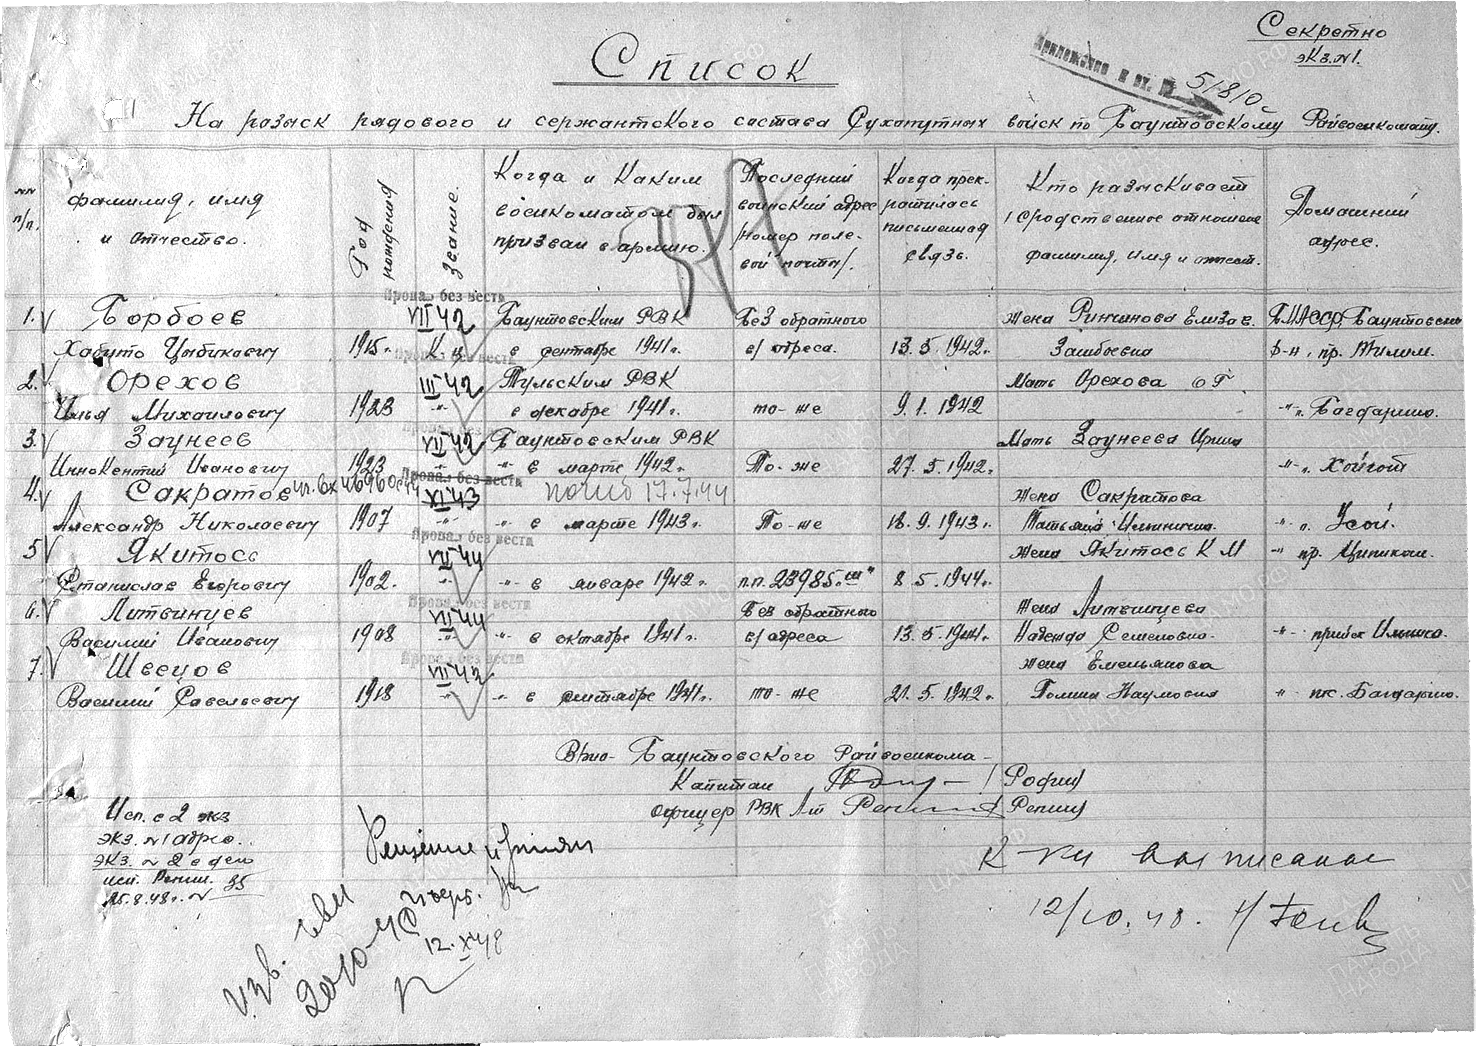 Секретно
экз. №1.
Список
Приложение к вх. №
51810с
На розыск рядового и сержантского состава Сухопутных войск по Баунтовскому Райвоенкомату.
№№ п/п.
фамилия, имя и отчество.
Год рождения
Звание.
Когда и Каким военкоматом был призван в армию.
Последний воинский адрес /Номер полевой почты/.
Когда прекратилась письменная связь.
Кто разыскивает /родственное отношение фамилия, имя и отчест.
Домашний адрес.
Пропал без вести
1. Борбоев VII 42 Баунтовским РВК Без обратного жена Ринчинова Елизав. БМАССР, Баунтовский
1915г. в сентябре 1941г. в/адреса. 13.5.1942г. р-н, пр.
Пропал без вести
2. Орехов III 42 Тульским РВК Мать Орехова О Г
Илья Михайлович 1923 -"- в декабре 1941г. то-же 9.1.1942 -"- Багдарино.
3. Заунеев VII 42 Баунтовским РВК Мать Заунеева Ирина
Иннокентий Иванович 1923 -"- в марте 1942г. То-же 27.5.1942г. -"- Хойгот
Пропал без вести
4. Сакратов XI 43 погиб 17.7.44 жена Сакратова
Александр Николаевич 1907 -"- -"- в марте 1943г. То-же 18.9.1943г. Татьяна Ильинична -"- Усой.
Пропал без вести
5 Якитось VII 44 Жена Якитось К М -"- пр. Ципикан.
Станислав Егорович 1902. -"- -"- в январе 1942г. п.п. 23985 "Ш" 8.5.1944г.
Пропал без вести
6. Литвинцев VII 44 Без обратного жена Литвинцева
Василий Иванович 1908 -"- -"- в октябре 1941г. в/адреса 13.5.1944г. Надежда Семеновна -"- прииск
Пропал без вести
7. Швецов VII 42 жена Емельянова
Василий Савельевич 1918 -"- -"- в сентябре 1941г. то-же 21.5.1942г. Наумовна -"- пос. Багдарино.
Врио- Баунтовского Райвоенкома-
Капитан /Рофин/
Офицер РВК Лт /Репин/
Исп. в 2 экз
экз. №1 адрес.
экз. №2 в дело
исп. Репин.
25.8.48г. № 35
12.X 48
К-ки выписаны
12/10.48.